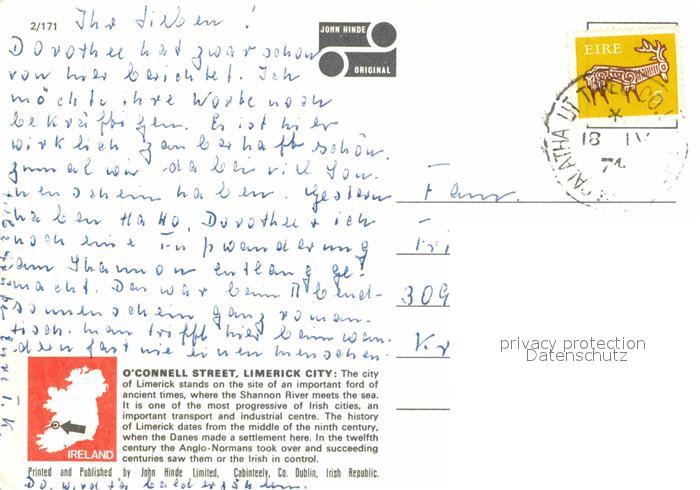 2/171
Ihr Lieben!
JOHN HINDE
ORIGINAL
EIRE
Dorothee hat zwar schon
von hier berichtet. Ich
möchte ihre Worte noch
bekräftigen. Es ist hier
wirklich zauberhaft schön,
zumal wir dabei viel Son-
nenschein haben. Gestern
haben HaHo, Dorothee + ich
noch eine Tn pwanderung
am Shannon entlang ge-
macht. Das war beim Abend-
sonnenschein ganz roman-
tisch. Man trifft hier beim Wan-
dern fast nie einen Menschen.
Fam.
309
18 IV
74
privacy protection
Datenschutz
O'CONNELL STREET, LIMERICK CITY: The city
of Limerick stands on the site of an important ford of
ancient times, where the Shannon River meets the sea.
It is one of the most progressive of Irish cities, an
important transport and industrial centre. The history
of Limerick dates from the middle of the ninth century,
when the Danes made a settlement here. In the twelfth
century the Anglo-Normans took over and succeeding
centuries saw them or the Irish in control.
IRELAND
Printed and Published by John Hinde Limited, Cabinteely, Co. Dublin, Irish Republic.
Do. wird ja bald erzählen.